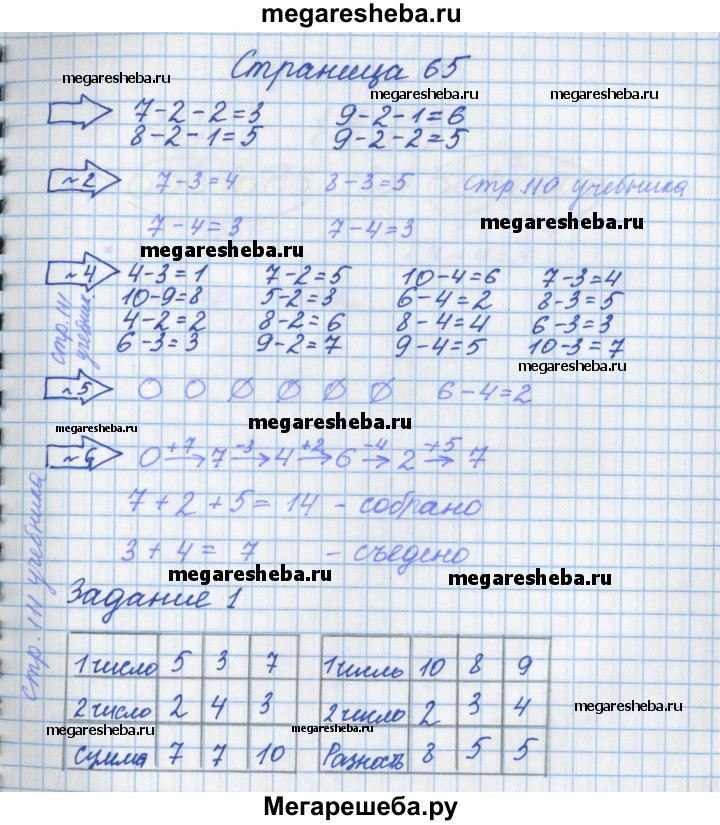 megaresheba.ru
Страница 65
megaresheba.ru megaresheba.ru megaresheba.ru
7-2-2=3 9-2-1=6
8-2-1=5 9-2-2=5
~2 7-3=4 8-3=5 стр.110 учебника
7-4=3 7-4=3 megaresheba.ru
megaresheba.ru
~4 4-3=1 7-2=5 10-4=6 7-3=4
10-9=8 5-2=3 6-4=2 8-3=5
4-2=2 8-2=6 8-4=4 6-3=3
6-3=3 9-2=7 9-4=5 10-3=7
стр.111 учебник.
megaresheba.ru
~5 0 0 0 0 0 0 6-4=2
megaresheba.ru megaresheba.ru
~6 0 +7→ 7 -3→ 4 +2→ 6 -4→ 2 +5→ 7
7+2+5= 14 - собрано
3+4= 7 - съедено
megaresheba.ru megaresheba.ru
стр.111 учебника
Задание 1
1 число 5 3 7 1 число 10 8 9
2 число 2 4 3 2 число 2 3 4
megaresheba.ru
megaresheba.ru megaresheba.ru
Сумма 7 7 10 Разность 8 5 5
Мегарешеба.ру